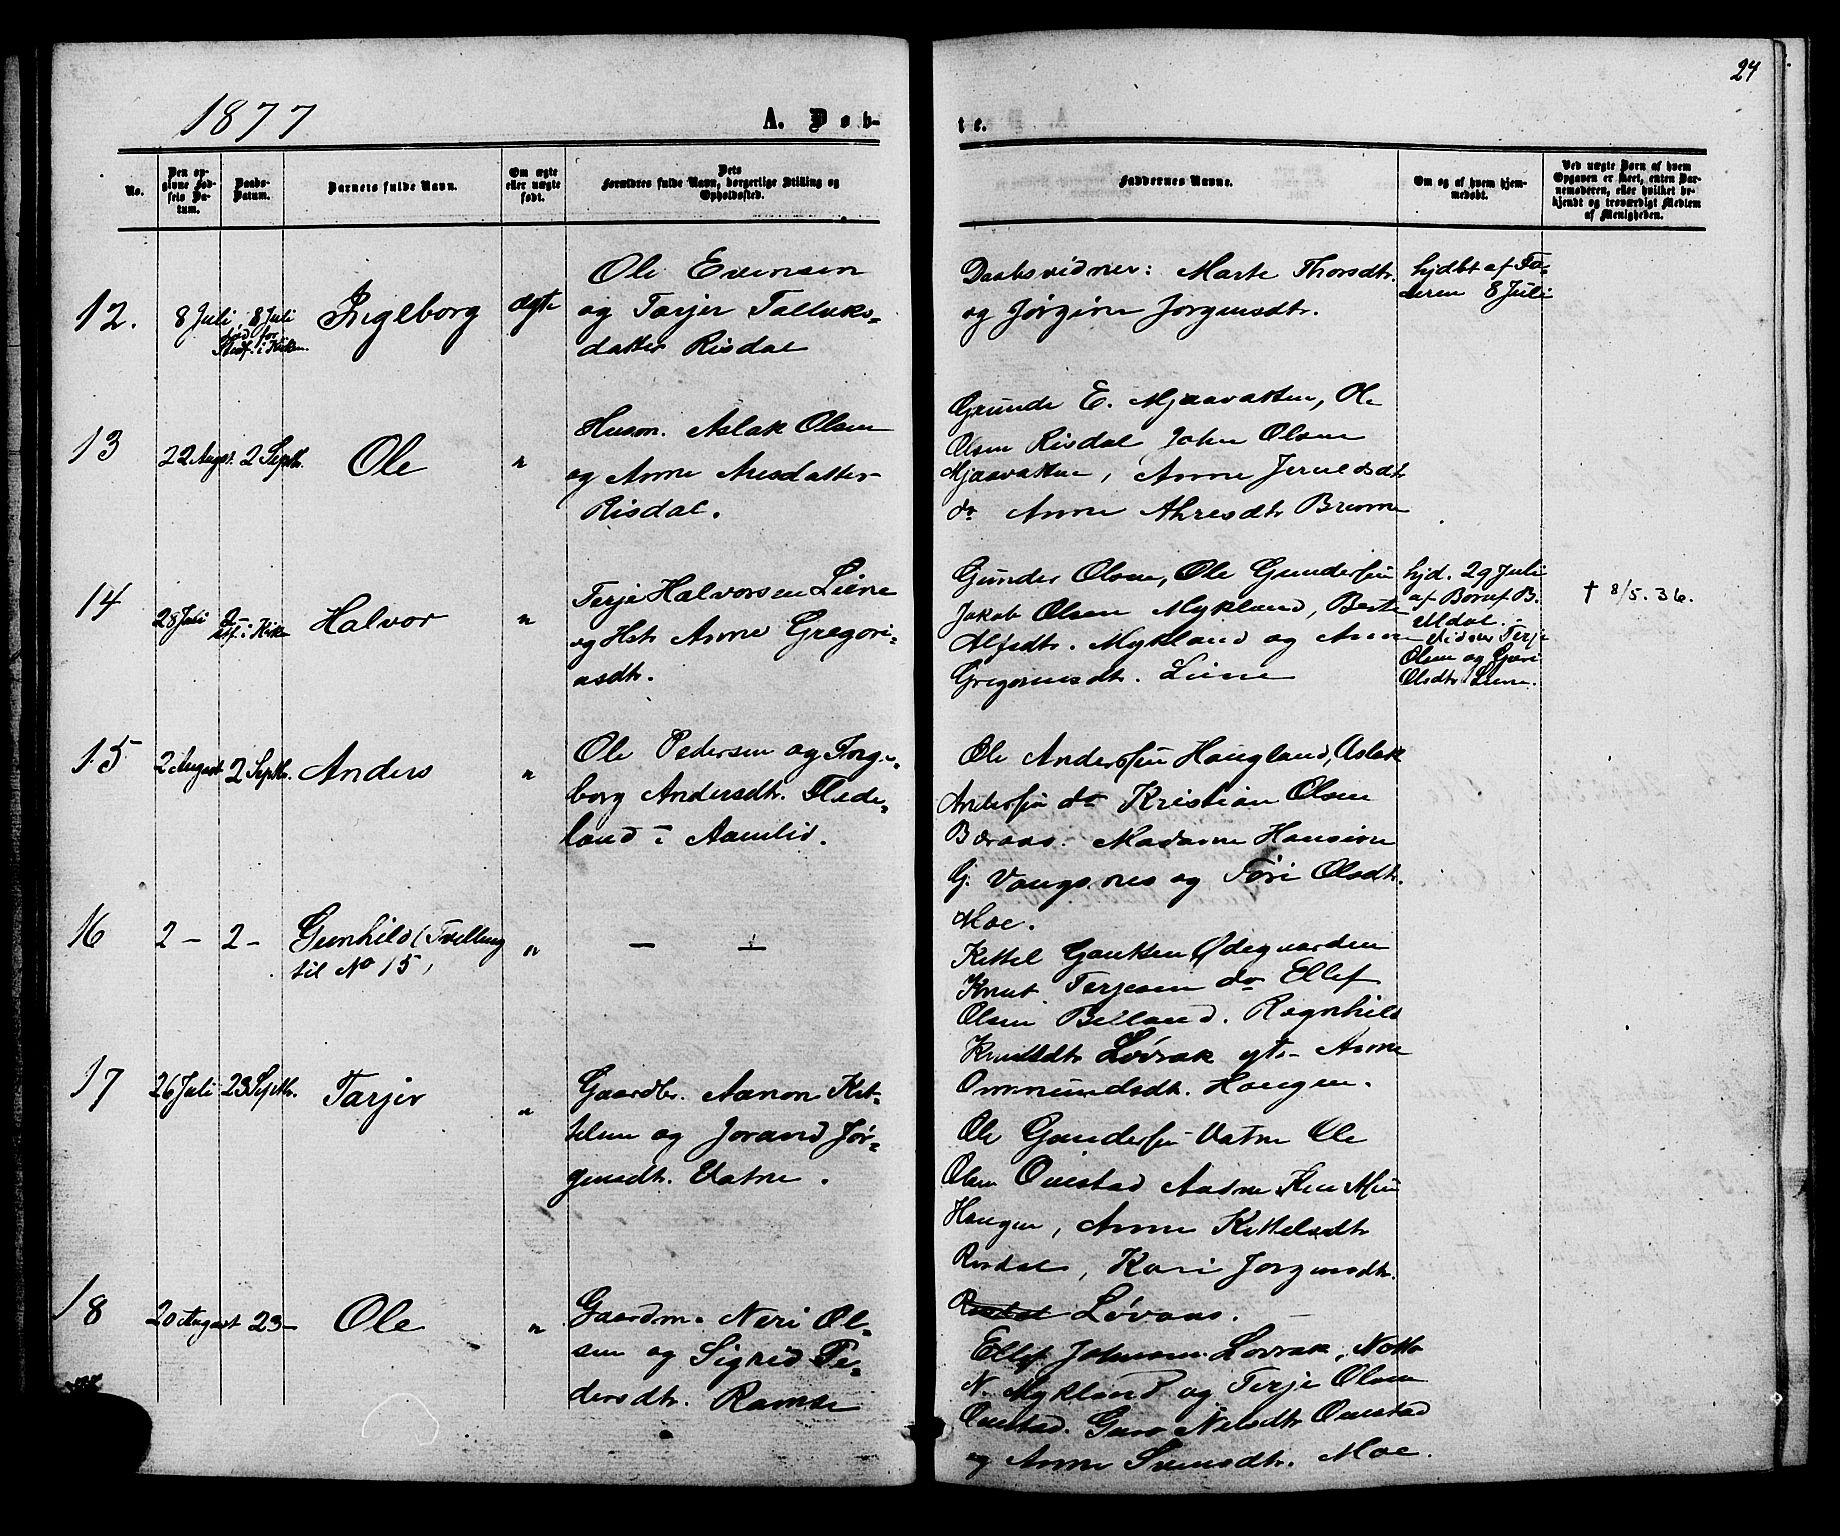 24
1877
A. Døb-
te.
No.
Den op-
givne Fød-
sels Da-
tum.
Daabs-
Datum.
Barnets fulde Navn.
Om ægte
eller uægte
født.
Dets
Forældres fulde Navn, borgerlige Stilling og
Opholdssted.
Faddernes Navne.
Om og af hvem hjem-
medøbt.
Ved uægte Børn af hvem
Opgaven er skeet, enten Bar-
nemoderen, eller hvilket be-
kjendt og troværdigt Medlem
af Menigheden.
12.
8 Juli
8 Juli
død før
Stadf. i Kirken.
Ingeborg
ægte
Ole Evensen
og Tarjer Tallaks-
datter Risdal
Daabsvidner: Marte Thorsdtr.
og Jørgine Jorgensdtr.
hjdbt af Fa-
deren 8 Juli
13
22 August. 2 Septbr.
Ole
"
Husm. Aslak Olsen
og Anne Aresdatter
Risdal.
Gunde E. Mjaavatten, Ole
Olsen Risdal John Olsen
Mjaavatten, Anne Jeruldsdtr
do Anne Ahresdtr Brenne
14
28 Juli
stf. i Kirke
Halvor
"
Terje Halvorsen Liene
og Hstr Anne Gregori-
asdtr.
Gunder Olsen, Ole Gundersen
Jakob Olsen Mykland, Berte
Alfsdtr. Mykland og Anne
Gregoriusdtr. Liene
hjd. 29 Juli
af B.
Vidner Terje
Olsen og
Olsdtr Liene.
† 8/5. 36.
15
2 August 2 Septbr.
Anders
"
Ole Pedersen og Inge-
borg Andersdtr. Flade-
land i Aamlid.
Ole Andersen Haugland, Aslak
Andersen do Kristian Olsen
Beraas. Madame Hansine
G. Vangsnes og Tøri Olsdtr.
Moe.
16
2 – 2 –
Gunhild (Tvilling
til No 15)
"
— —
Kittel Gauksen Ødegaarden
Knut Terjesen do Ellef
Olsen Belland. Ragnhild
Knutsdtr Løvrak gt. Anne
Ommundsdtr. Haugen.
17
26 Juli 23 Septbr.
Tarjer
"
Gaardbr. Aanon Kit-
telsen og Jorand Jør-
gensdtr. Vatne.
Ole Gundersen Vatne Ole
Olsen Ovestad Aadne Knutsen
Haugen, Anne Kittelsdtr
Risdal, Kari Jorgensdtr.
Løvaas.
18
20 August 23 –
Ole
"
Gaardm. Neri Ol-
sen og Sigrid Pe-
dersdtr. Ramse
Ellef Johnsen Løvrak, Notto
N. Mykland og Terje Olsen
Ovestad. Guro Nilsdtr Ovestad
og Anne Svensdtr. Moe.